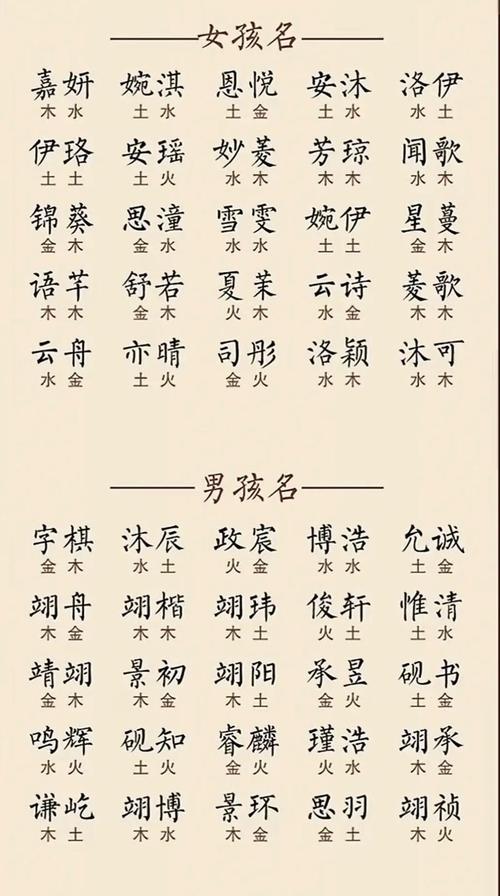 女孩名
嘉妍 婉淇 恩悦 安沐 洛伊
木水 土水 土金 土水 水土
伊珞 安瑶 妙菱 芳琼 闻歌
土土 土火 水木 木木 水木
锦葵 思潼 雪雯 婉伊 星蔓
金木 金水 水水 土土 金木
语芊 舒若 夏茉 云诗 菱歌
木木 金木 火木 水金 木木
云舟 亦晴 司彤 洛颖 沐可
水金 土火 金火 水木 水木
男孩名
字棋 沐辰 政宸 博浩 允诚
金木 水土 火金 水水 土金
翊舟 翊楷 翊玮 俊轩 惟清
木金 木木 木土 火土 土水
靖翊 景初 翊阳 承昱 砚书
金木 木金 木土 金火 土金
鸣辉 砚知 睿麟 瑾浩 翊承
水火 土火 金火 火水 木金
谦屹 翊博 景环 思羽 翊祯
木土 木水 木金 金土 木火